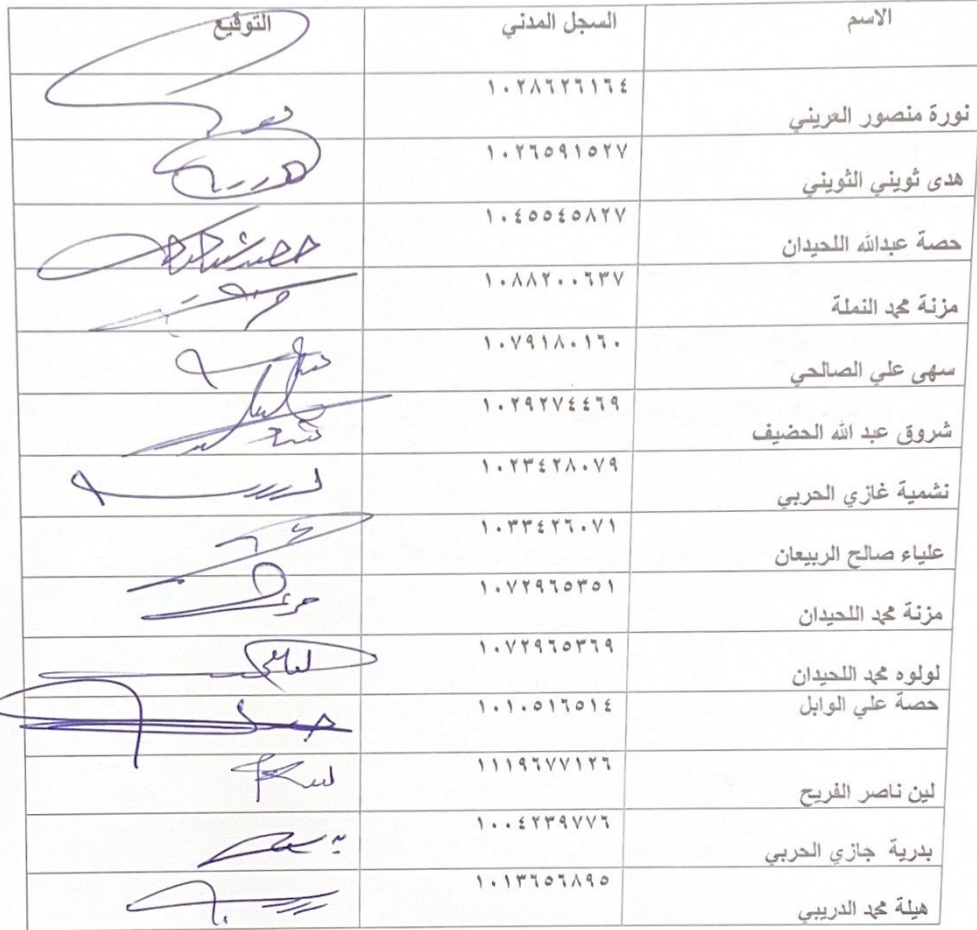 الاسم السجل المدني التوقيع
نورة منصور العريني ١٠٢٨٦٢٦١٦٤
هدى ثويني الثويني ١٠٢٦٥٩١٥٢٧
حصة عبدالله اللحيدان ١٠٤٥٥٤٥٨٢٧
مزنة محمد النملة ١٠٨٨٢٠٠٦٣٧
سهى علي الصالحي ١٠٧٩١٨٠١٦٠
شروق عبد الله الحضيف ١٠٢٩٢٧٤٤٦٩
نشمية غازي الحربي ١٠٢٣٤٢٨٠٧٩
علياء صالح الربيعان ١٠٣٣٤٢٦٠٧١
مزنة محمد اللحيدان ١٠٧٢٩٦٥٣٥١
لولوه محمد اللحيدان ١٠٧٢٩٦٥٣٦٩
حصة علي الوابل ١٠١٠٥١٦٥١٤
لين ناصر الفريح ١١١٩٦٧٧١٢٦
بدرية جازي الحربي ١٠٠٤٢٣٩٧٧٦
هيلة محمد الدريبي ١٠١٣٦٥٦٨٩٥